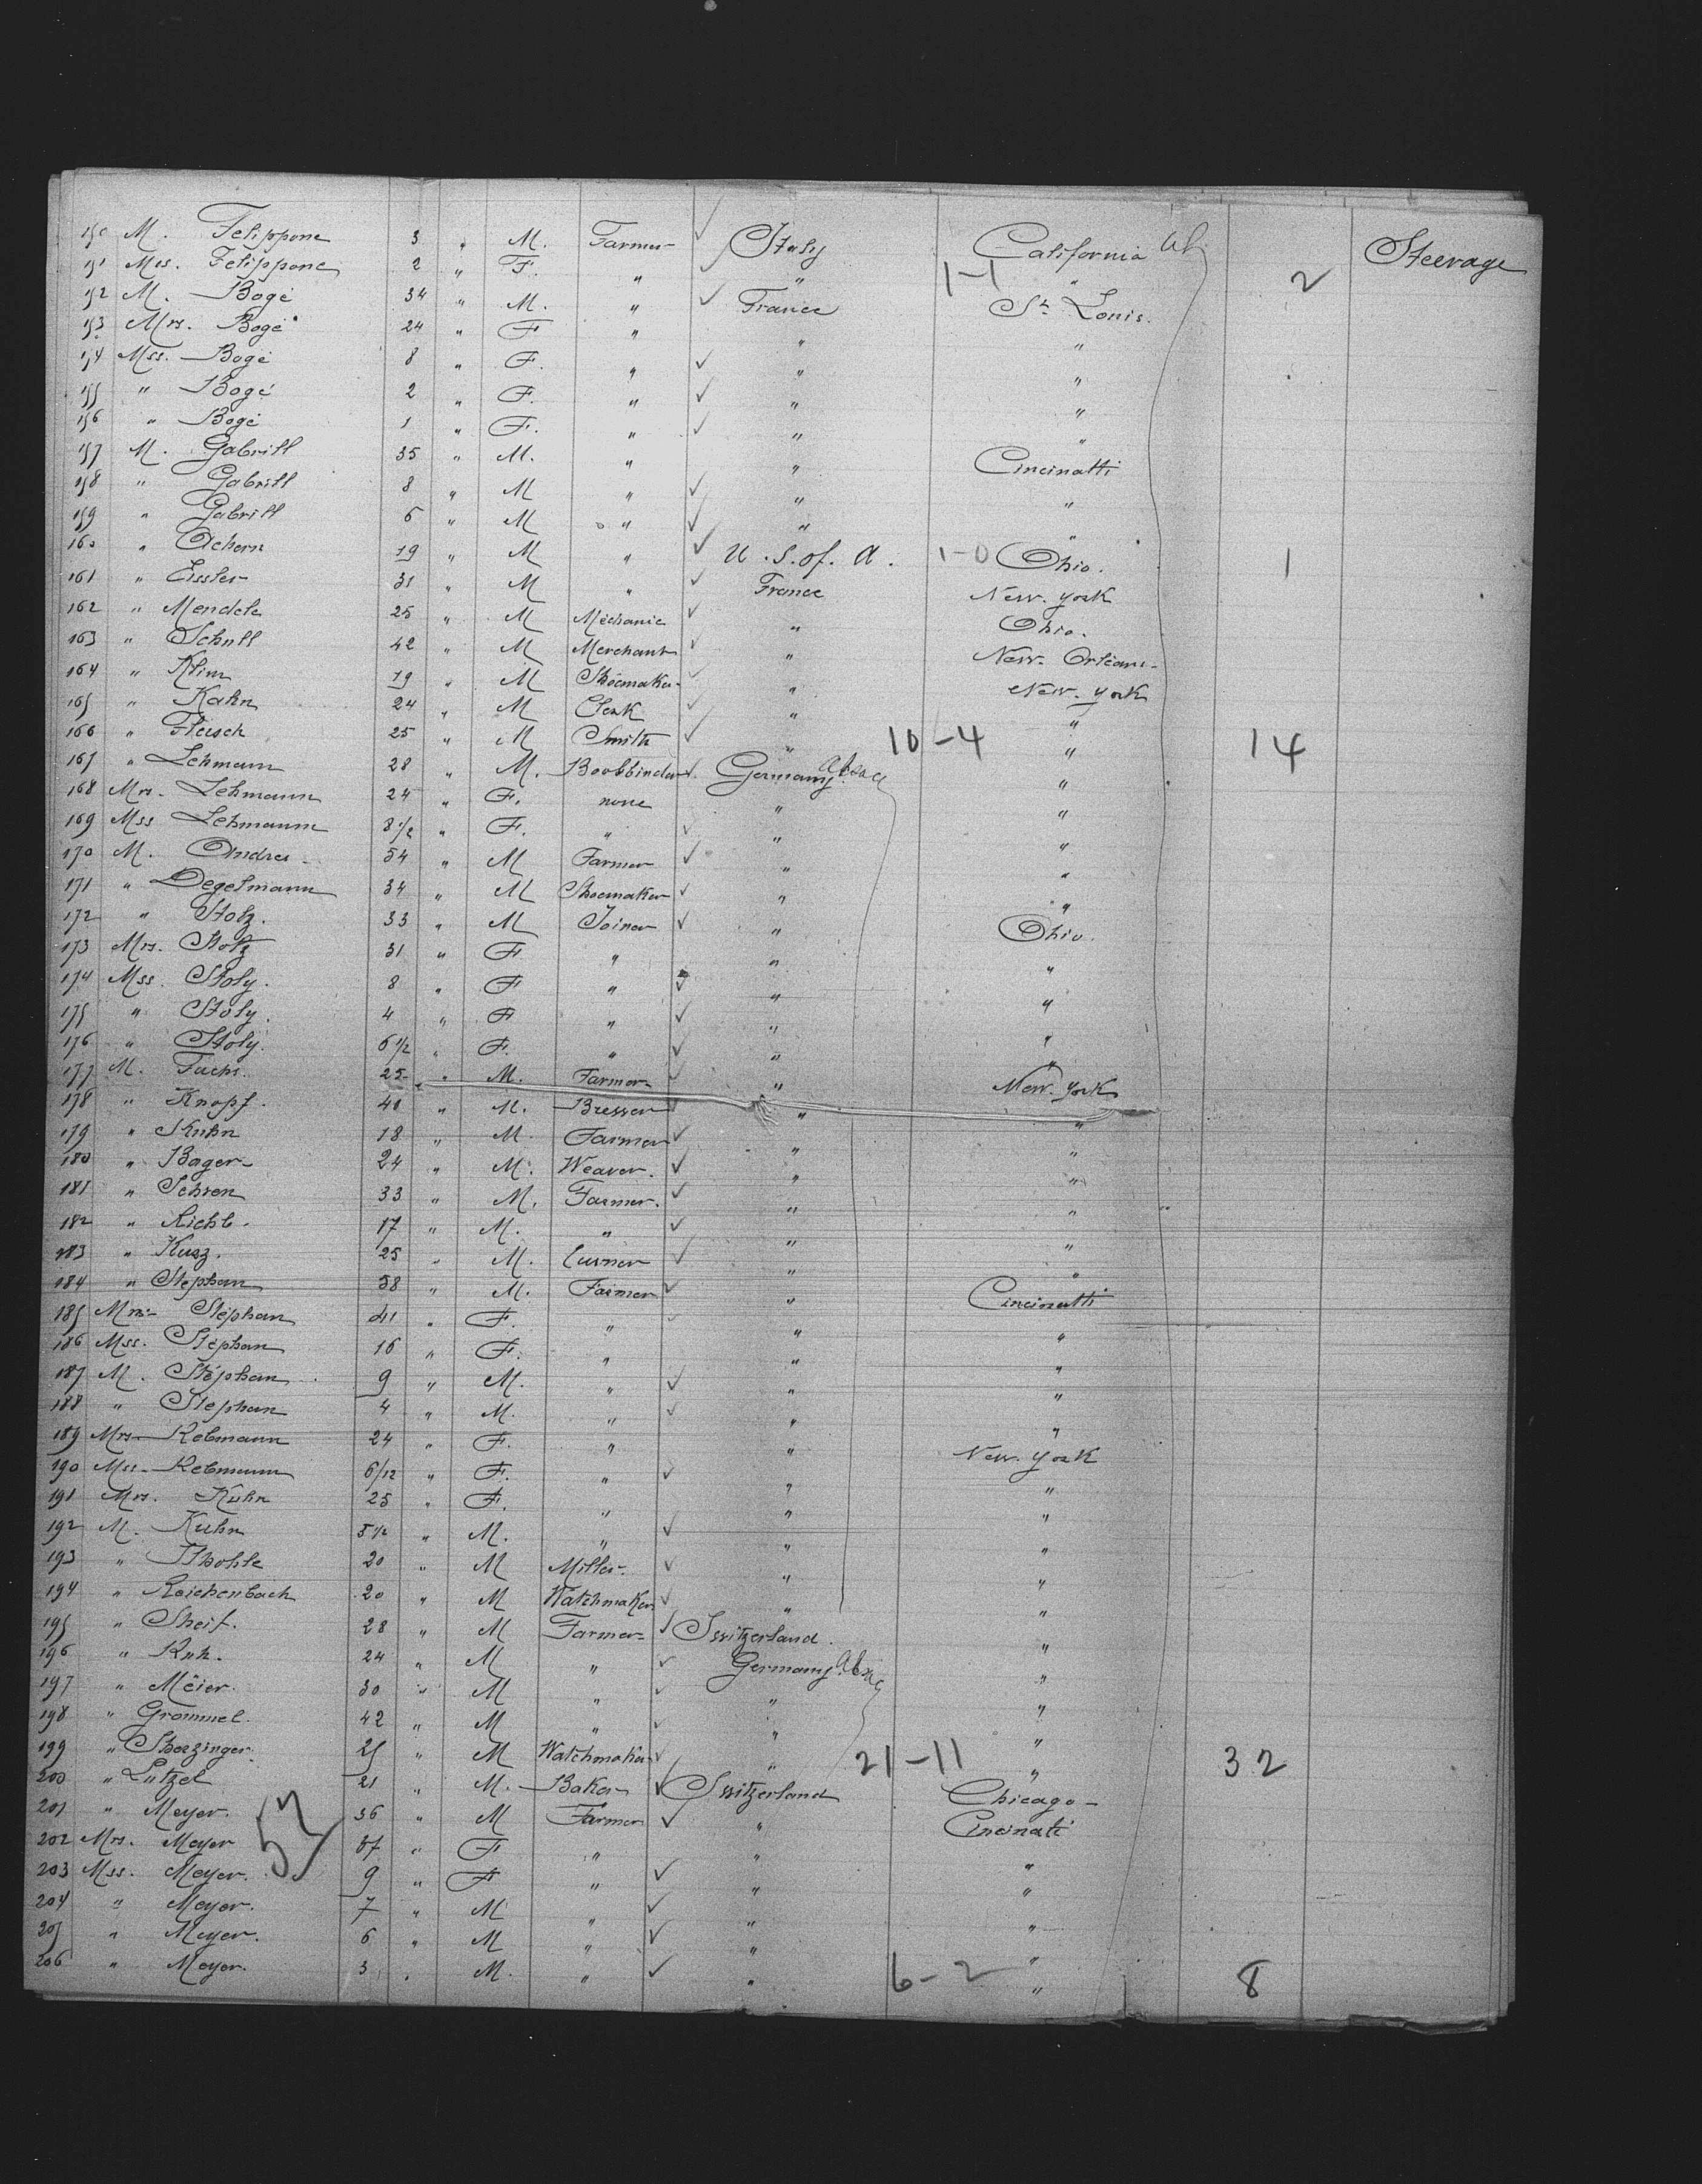 150 M. Felippone 3 " M. Farmer Italy California Steerage
151 Mss. Felippone 2 " F. " " 1-1 " 2
152 M. Bogé 34 " M. " France St. Louis.
153 Mrs. Bogé 24 " F " " "
154 Mss. Bogé 8 " F. " " "
155 " Bogé 2 " F. " " "
156 " Bogé 1 " F. " " "
157 M. Gabrill 35 " M. " " Cincinatti
158 " Gabrill 8 " M " " "
159 " Gabrill 6 " M " " "
160 " Achorn 19 " M " U. S. of. A. 1-0 Ohio. 1
161 " Eissler 31 " M " France New. York
162 " Mendele 25 " M Méchanic " Ohio.
163 " Schull 42 " M Merchant " New. Orléans
164 " Klim 19 " M Shoemaker " New. York
165 " Kahn 24 " M Clerk " "
166 " Fleisch 25 " M Smith " 10-4 " 14
167 " Lehmann 28 " M. Boobbinder Germany "
168 Mrs. Lehmann 24 " F. none " "
169 Mss Lehmann 8 1/2 " F. " " "
170 M. Andres 54 " M Farmer " "
171 " Degelmann 34 " M Shoemaker " "
172 " Stolz. 33 " M Joiner " Ohio.
173 Mrs. Stolz 31 " F " " "
174 Mss. Stoly. 8 " F " " "
175 " Stoly. 4 " F " " "
176 " Stoly. 6 1/2 " F. " " "
177 M. Fuchs. 25 " M. Farmer " New. York
178 " Knopf. 40 " M. Bresser " "
179 " Kuhn 18 " M. Farmer " "
180 " Bager 24 " M. Weaver. " "
181 " Schren 33 " M. Farmer. " "
182 " Richl. 17 " M. " " "
183 " Kusz. 25 " M. Curner " "
184 " Stephan 58 " M. Farmer " Cincinatti
185 Mrs. Stéphan 41 " F. " " "
186 Mss. Stéphan 16 " F. " " "
187 M. Stéphan 9 " M. " " "
188 " Stephan 4 " M. " " "
189 Mrs. Rebmann 24 " F. " " New. York
190 Mss. Rebmann 6/12 " F. " " "
191 Mrs. Kuhn 25 " F. " " "
192 M. Kuhn 5 1/2 " M. " " "
193 " 20 " M Miller " "
194 " Reichenbach 20 " M Watchmaker " "
195 " Sheif. 28 " M Farmer Switzerland. "
196 " Ruh. 24 " M " Germany "
197 " Meier. 30 " M " " "
198 " Grommel. 42 " M " " "
199 " Sherzinger. 25 " M Watchmaker " 21-11 " 32
200 " Lützel 21 " M. Baker Switzerland Chicago
201 " Meyer. 36 " M Farmer " Cincinati
202 Mrs. Meyer 37 " F " " "
203 Mss. Meyer. 9 " F " " "
204 " Meyer. 7 " M " " "
205 " Meyer. 6 " M " " "
206 " Meyer. 3 " M. " " 6-2 " 8
57